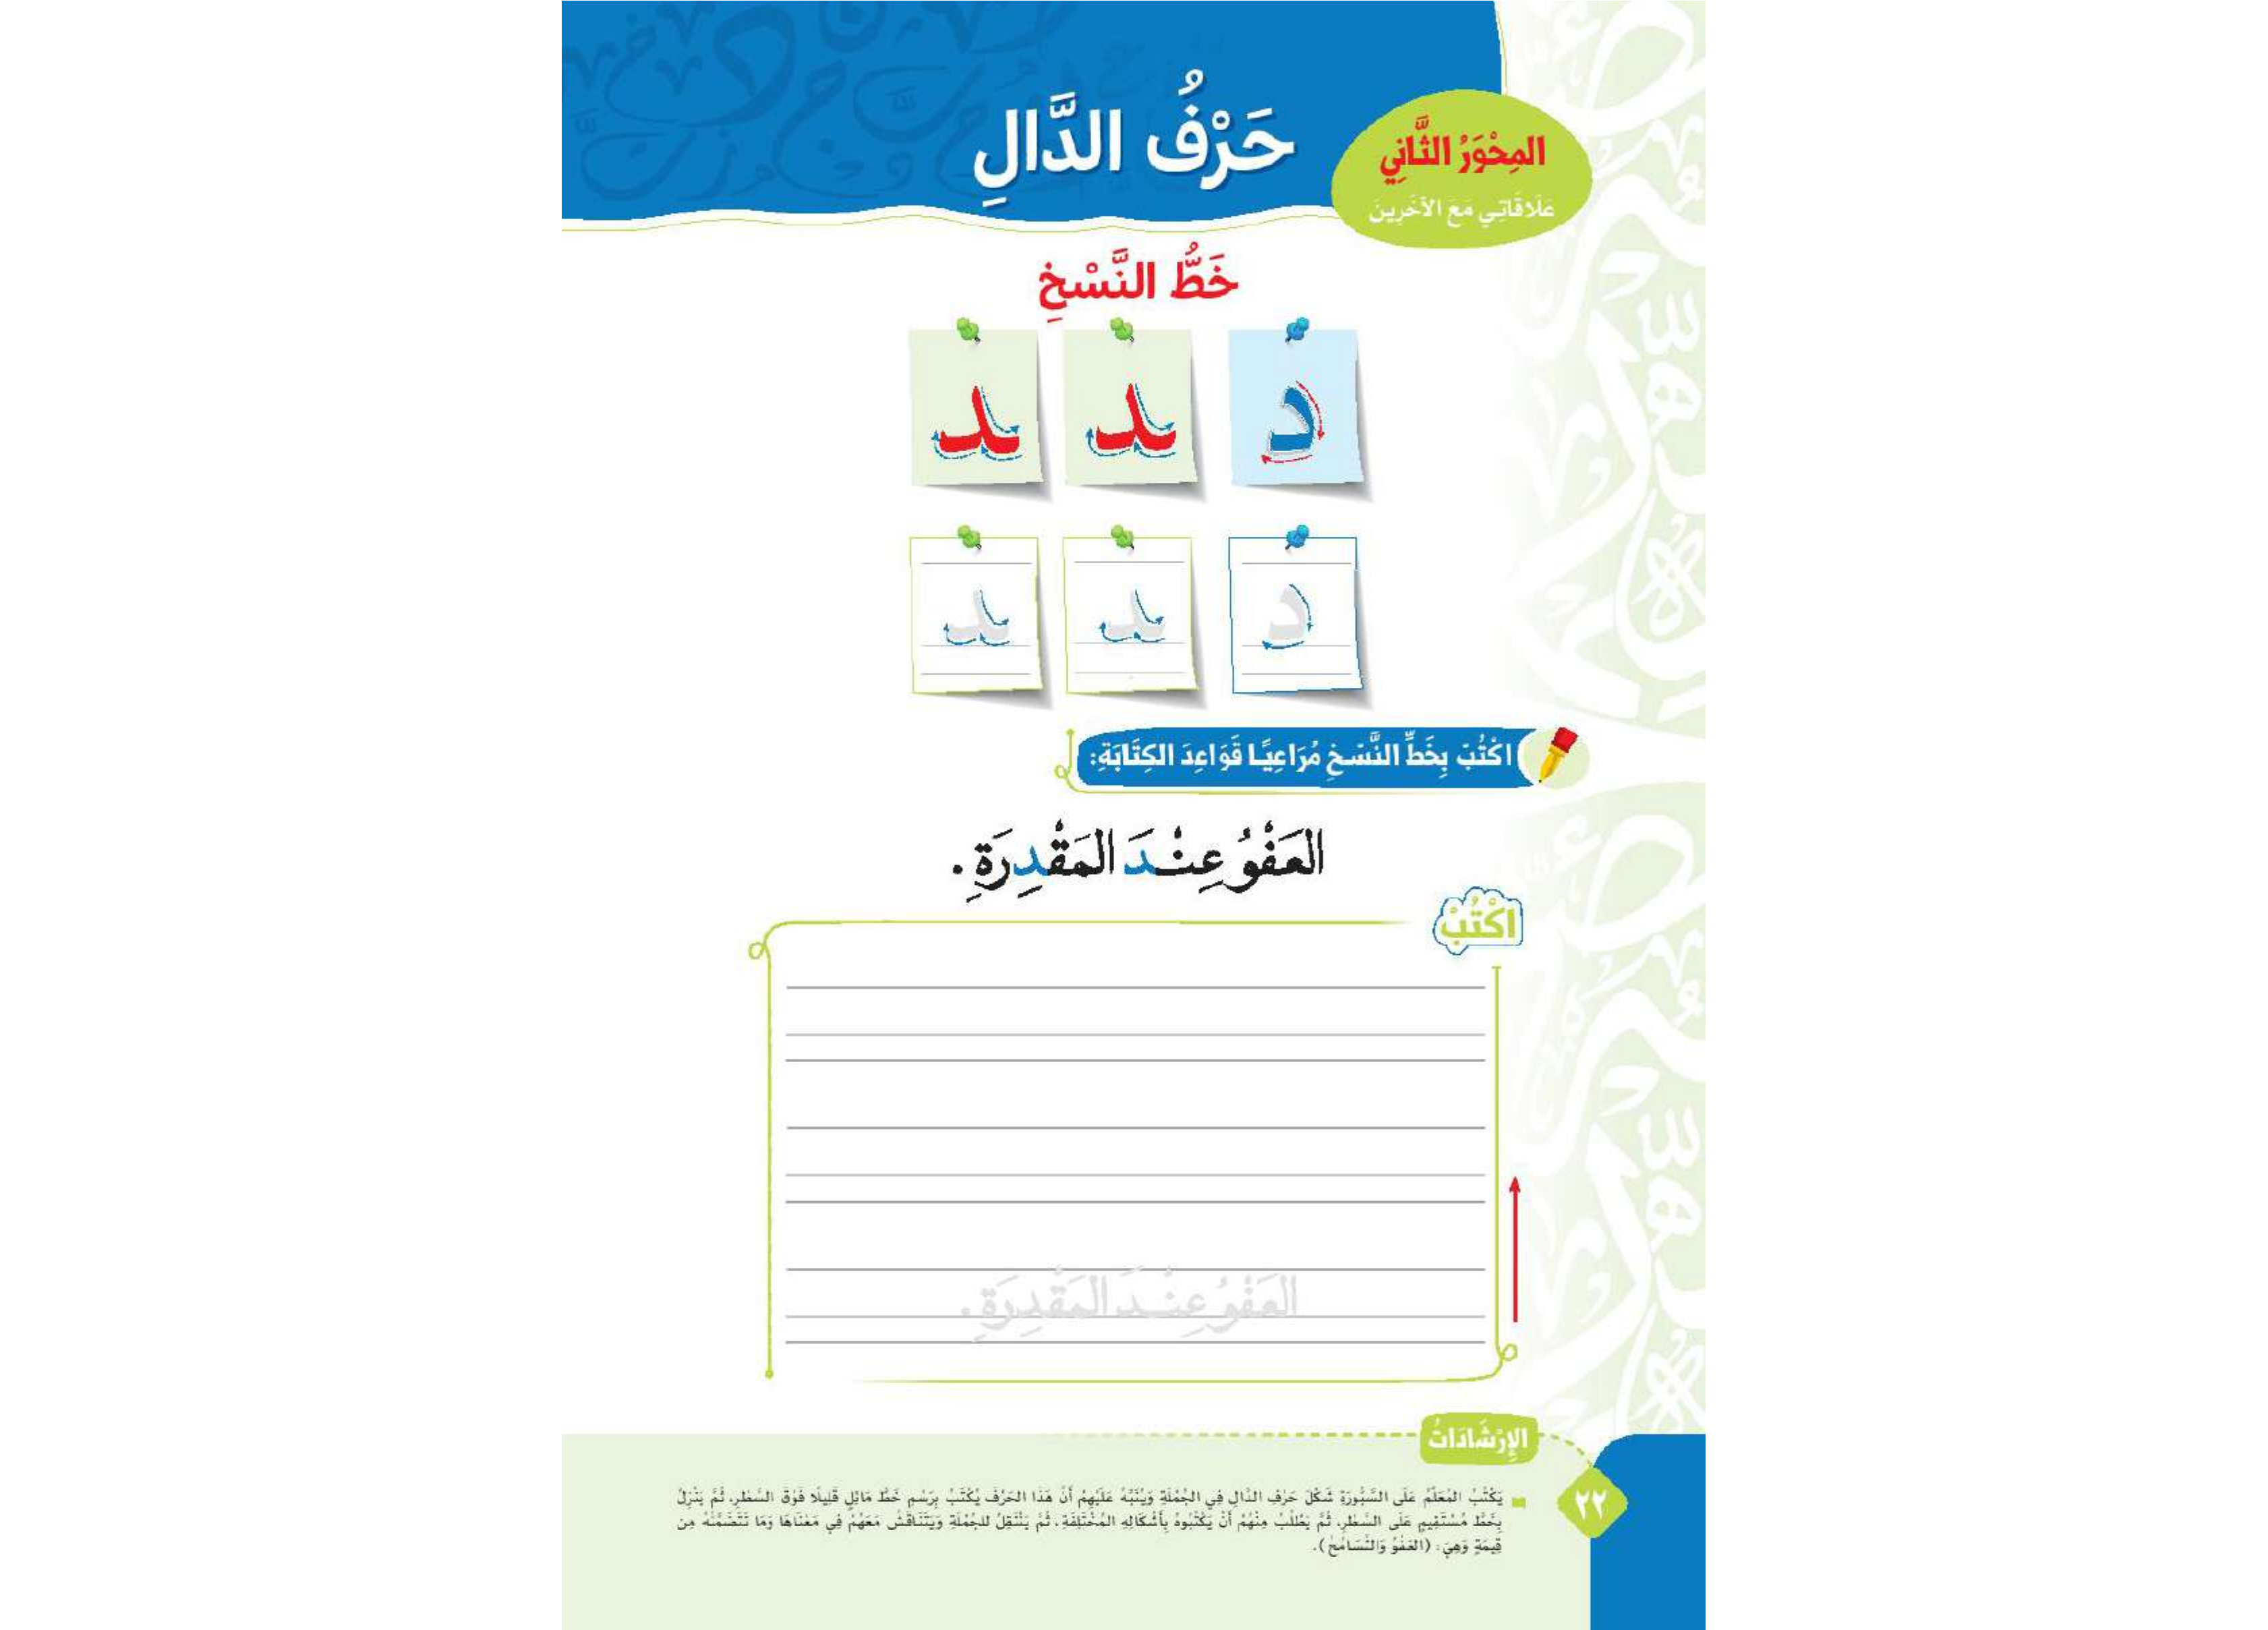 المِحْوَرُ الثَّانِي
عَلَاقَاتِي مَعَ الآخَرِينَ
حَرْفُ الدَّالِ
خَطُّ النَّسْخِ
د ـد ـد
د ـد ـد
اكْتُبْ بِخَطِّ النَّسْخِ مُرَاعِيًا قَوَاعِدَ الكِتَابَةِ:
العَفْوُ عِنْدَ المَقْدِرَةِ.
اكْتُبْ
العَفْوُ عِنْدَ المَقْدِرَةِ.
الإِرْشَادَاتُ
يَكْتُبُ المُعَلِّمُ عَلَى السَّبُّورَةِ شَكْلَ حَرْفِ الدَّالِ فِي الجُمْلَةِ وَيُنَبِّهُ عَلَيْهِمْ أَنَّ هَذَا الحَرْفَ يُكْتَبُ بِرَسْمِ خَطٍّ مَائِلٍ قَلِيلًا فَوْقَ السَّطْرِ، ثُمَّ يَنْزِلُ
بِخَطٍّ مُسْتَقِيمٍ عَلَى السَّطْرِ، ثُمَّ يَطْلُبُ مِنْهُمْ أَنْ يَكْتُبُوهُ بِأَشْكَالِهِ المُخْتَلِفَةِ، ثُمَّ يَنْتَقِلُ للجُمْلَةِ وَيَتَنَاقَشُ مَعَهُمْ فِي مَعْنَاهَا وَمَا تَتَضَمَّنُهُ مِن
قِيمَةٍ وَهِيَ: (العَفْوُ وَالتَّسَامُحُ).
٢٢